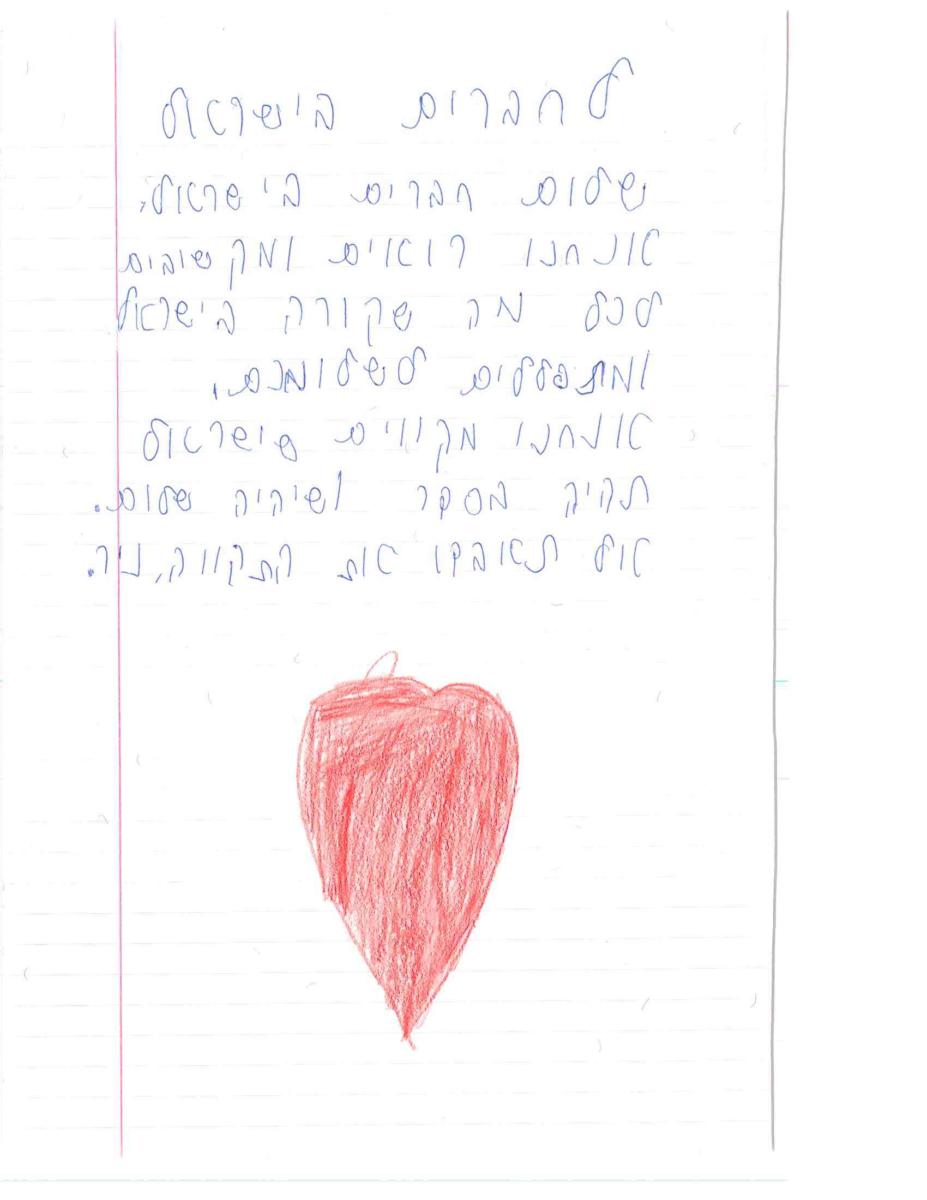 לחברים בישראל
שלום חברים בישראל,
אנחנו רואים ומקשיבים
לכל מה שקורה בישראל
ומתפללים לשלומכם.
אנחנו מקווים שישראל
תהיה בסדר ושיהיה שלום.
אל תאבדו את התקווה, ניר.